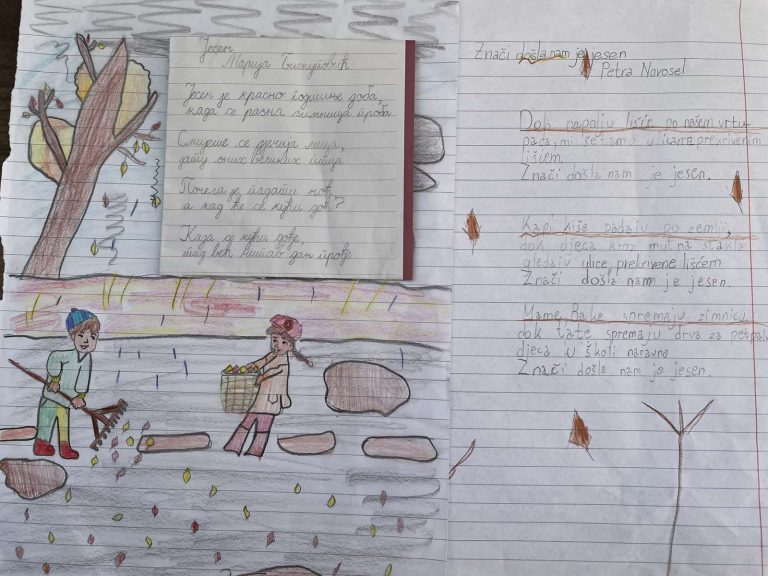 Јесен
Марија Бискуповић
Јесен је красно годишње доба,
када се разна зимница проба.
Смијеше се дјечија лица,
јату оних великих птица.
Почела је падати ноћ,
а кад ће се кући доћ?
Када се кући дође,
тад већ читав дан прође.
Znači došla nam je jesen
Petra Novosel
Dok napolju lišće po našem vrtu
pada, mi šetamo ulicama prekrivenim
lišćem.
Znači došla nam je jesen.
Kapi kiše padaju po zemlji,
dok djeca kroz mutna stakla
gledaju ulice prekrivene lišćem
Znači došla nam je jesen.
Mame, Bake spremaju zimnicu
dok tate spremaju drva za
djeca u školi naravno
Znači došla nam je jesen.